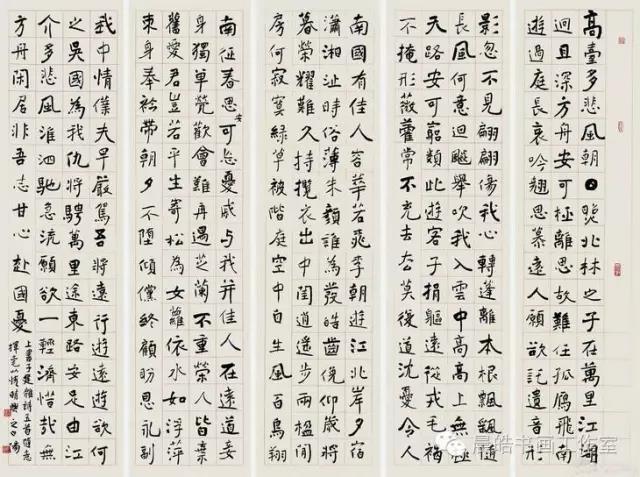 高臺多悲風朝日照北林之子在萬里江湖
迥且深方舟安可極離思故難任孤鴈飛南
遊過庭長哀吟翹思慕遠人願欲託遺音形
影忽不見翩翩傷我心轉蓬離本根飄颻隨
長風何意迴飇舉吹我入雲中高高上無極
天路安可窮類此遊客子捐軀遠從戎毛褐
不掩形薇藿常不充去去莫復道沈憂令人
南國有佳人容華若桃李朝遊江北岸夕宿
瀟湘沚時俗薄朱顏誰為發皓齒俛仰歲將
暮榮耀難久持攬衣出中閨逍遙步兩楹閒
房何寂寞綠草被階庭空中自生風百鳥翔
南征春思安可忘憂慼與我并佳人在遠道妾
身獨單煢歡會難再遇芝蘭不重榮人皆棄
舊愛君豈若平生寄松為女蘿依水如浮萍
束身奉衿帶朝夕不墮傾儻終顧盼恩永副
我中情僕夫早嚴駕吾將遠行遊遠遊欲何
之吳國為我仇將騁萬里途東路安足由江
介多悲風淮泗馳急流願欲一輕濟惜哉無
方舟閑居非吾志甘心赴國憂
上書子建雜詩五首隨意
晨皓书画工作室